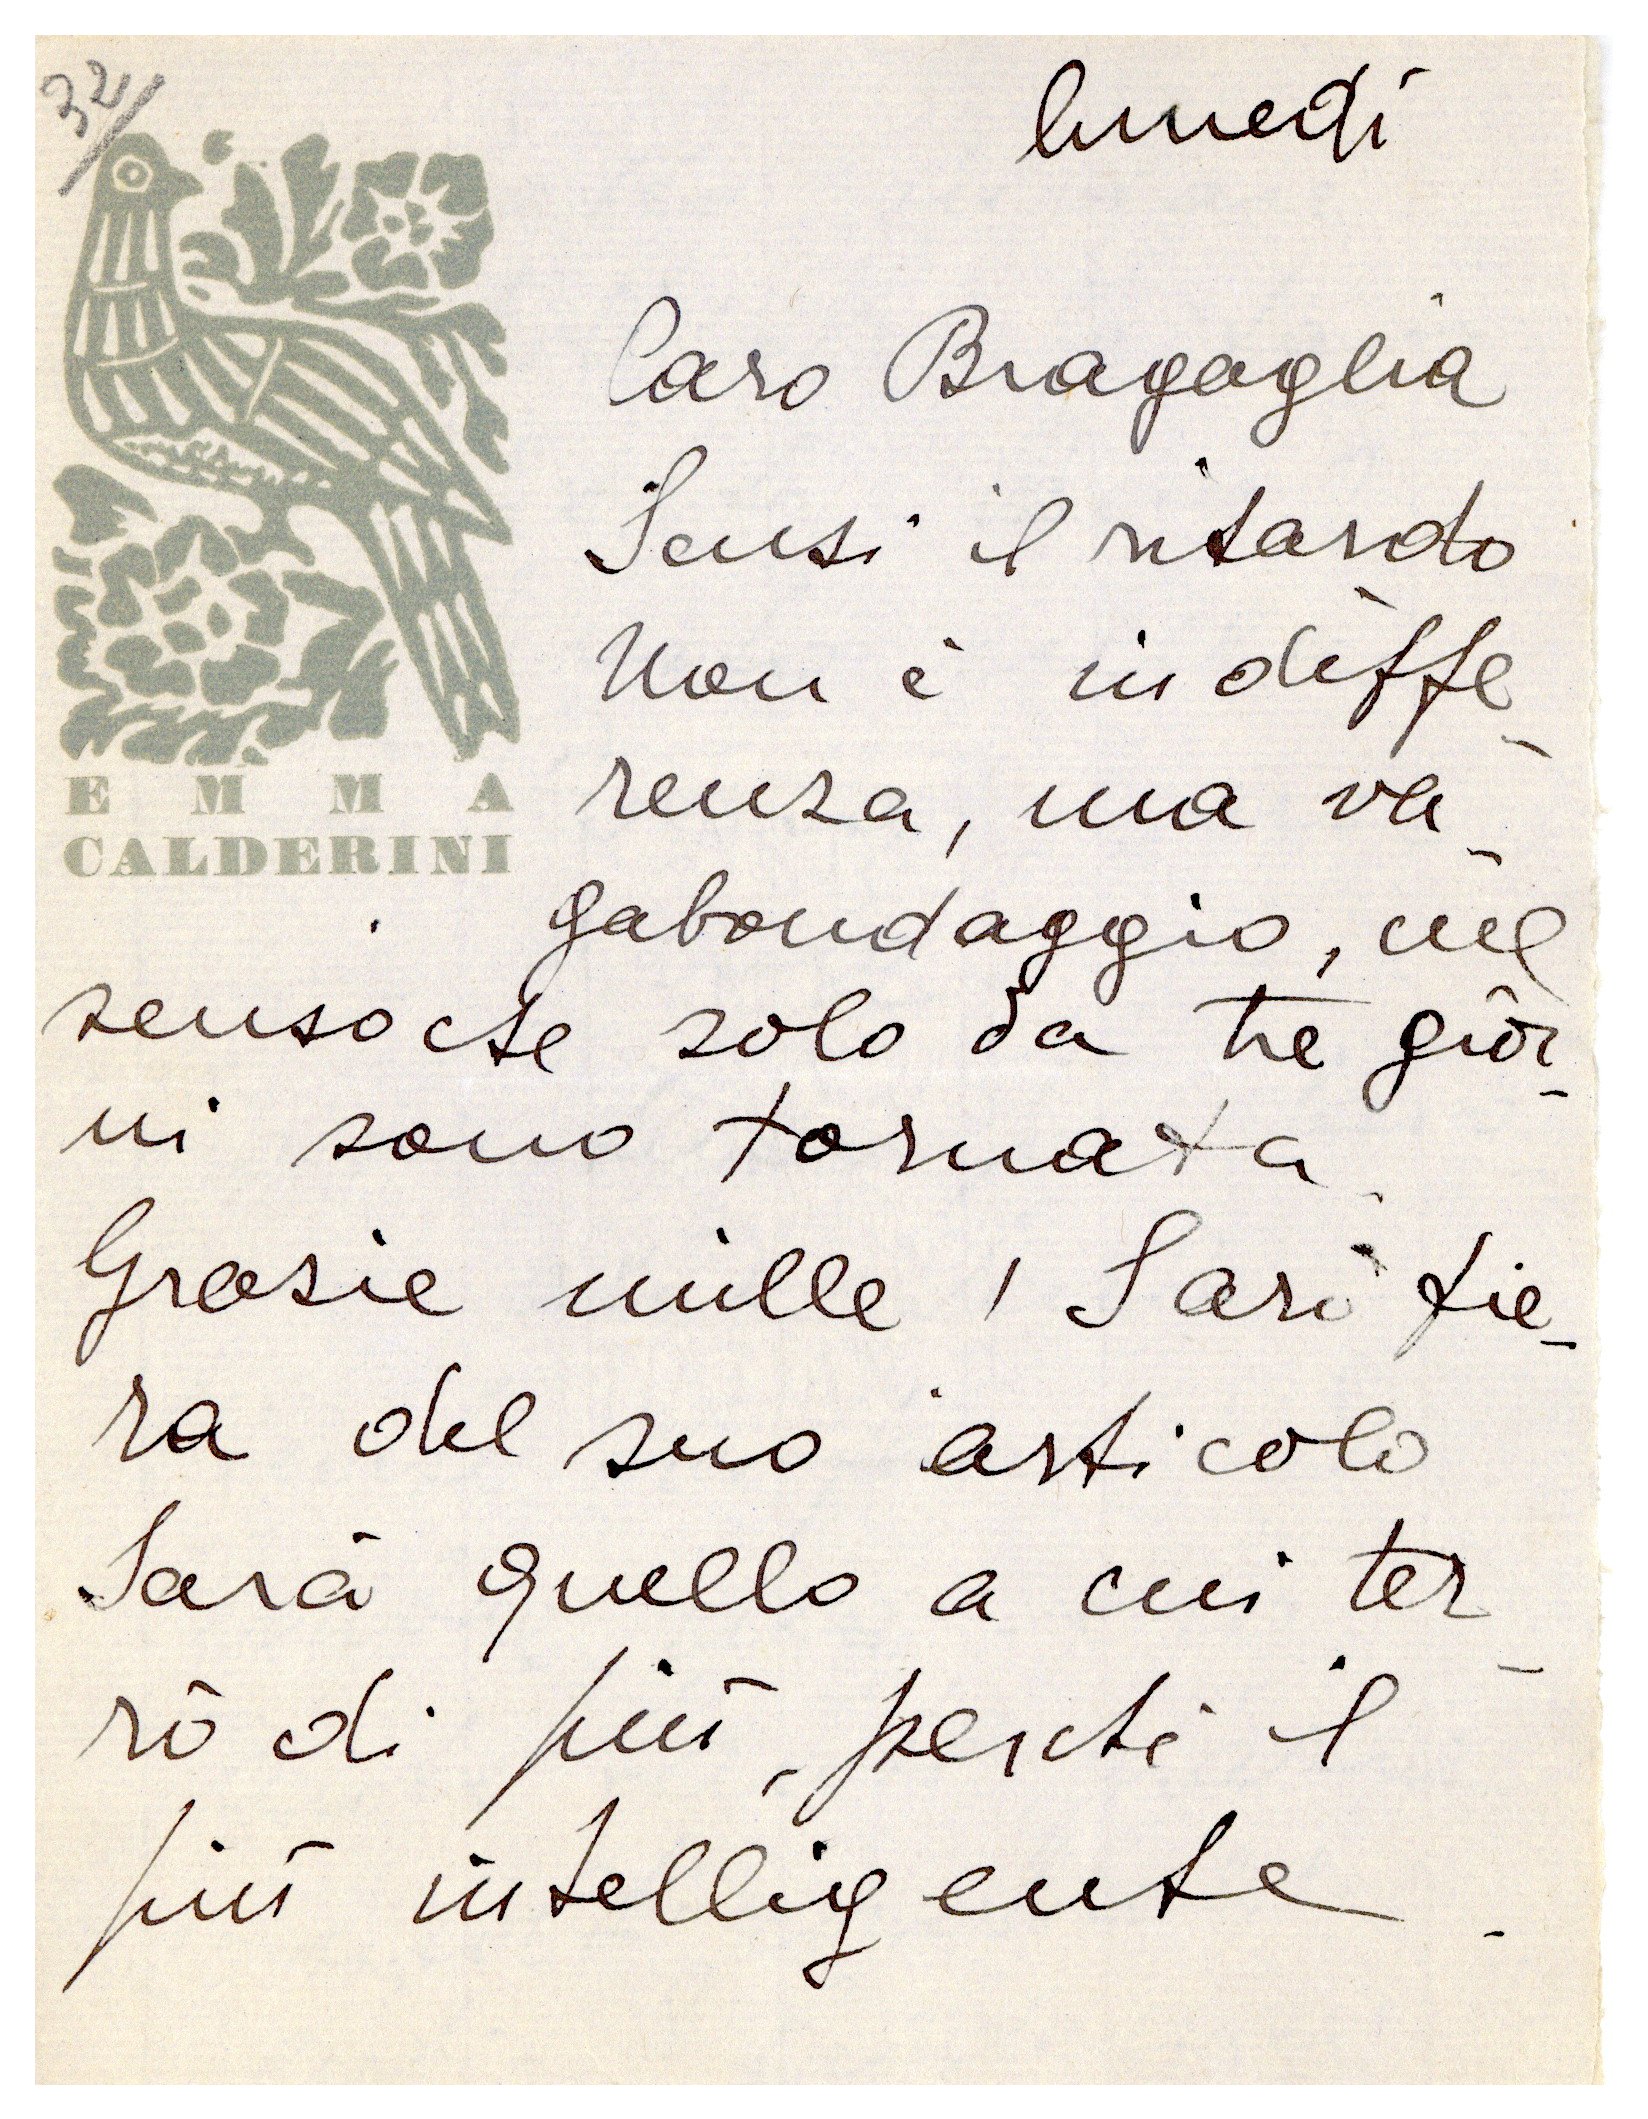 32
lunedì
EMMA
CALDERINI
Caro Bragaglia
Scusi il ritardo
Non è indiffe-
renza, ma va-
gabondaggio, nel
senso che solo da tre gior-
ni sono tornata.
Grazie mille! Sarò fie-
ra del suo articolo
Sarà quello a cui ter-
rò di più, perché il
più intelligente.